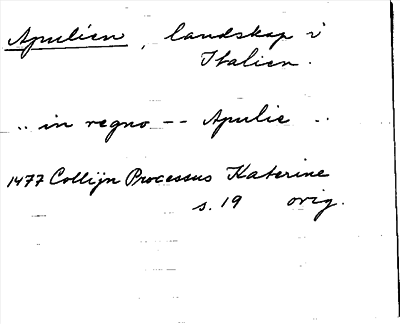 Apulien, landskap i
Italien.
.. in regno -- Apulie ..
1477 Collijn Processus Katerine
s. 19 orig.